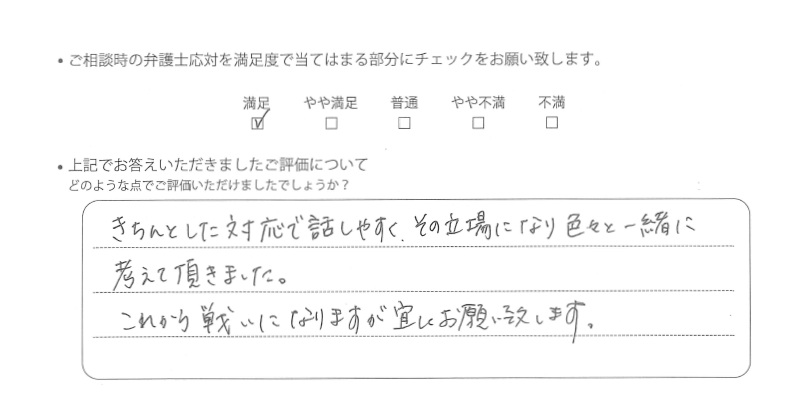 ・ご相談時の弁護士応対を満足度で当てはまる部分にチェックをお願い致します。
満足 やや満足 普通 やや不満 不満
☑ □ □ □ □
・上記でお答えいただきましたご評価について
どのような点でご評価いただけましたでしょうか？
きちんとした対応で話しやすく、その立場になり色々と一緒に
考えて頂きました。
これから戦いになりますが宜しくお願い致します。